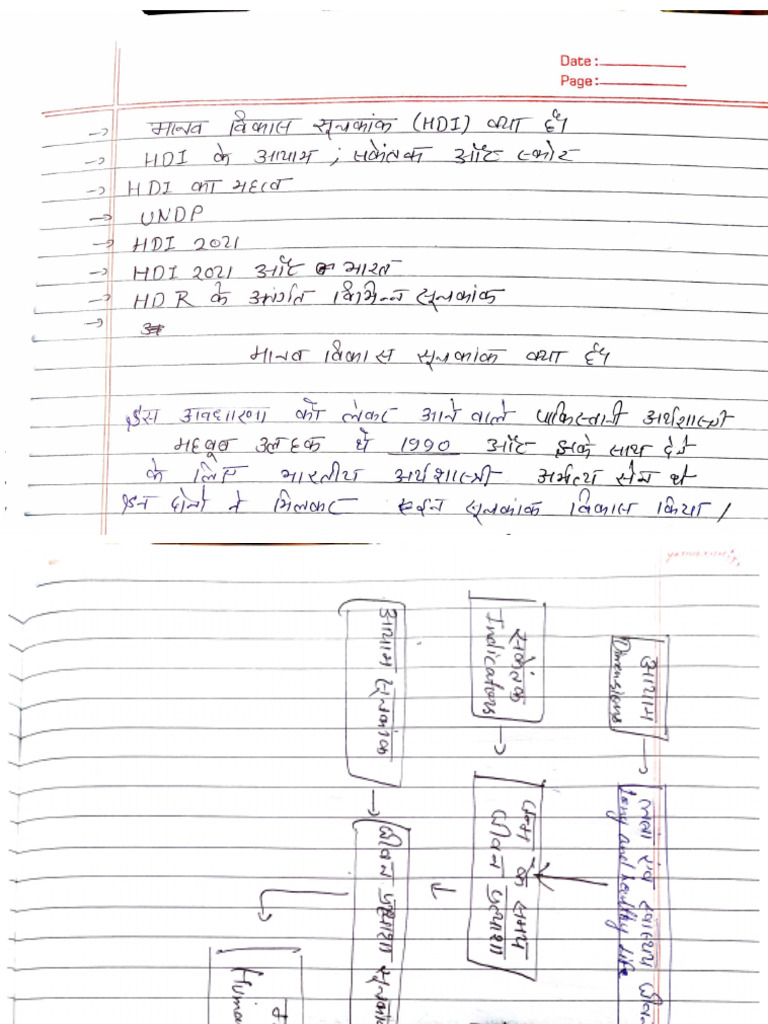 Date:
Page:
→ मानव विकास सूचकांक (HDI) क्या है?
→ HDI के आयाम ; संकेतक और स्कोर
→ HDI का महत्व
→ UNDP
→ HDI 2021
→ HDI 2021 और भारत
→ HDR के अंतर्गत विभिन्न सूचकांक
→
मानव विकास सूचकांक क्या है?
इस अवधारणा को लेकर आने वाले पाकिस्तानी अर्थशास्त्री
महबूब उल हक थे 1990 और इनके साथ देने
के लिए भारतीय अर्थशास्त्री अमर्त्य सेन थे
इन दोनों ने मिलकर इस सूचकांक विकास किया।
आयाम
Dimensions
→
लम्बा एवं स्वास्थ्य
long and healthy life
संकेतक
Indications
→
जन्म के समय
जीवन प्रत्याशा
आयाम सूचकांक
→
जीवन प्रत्याशा
Human